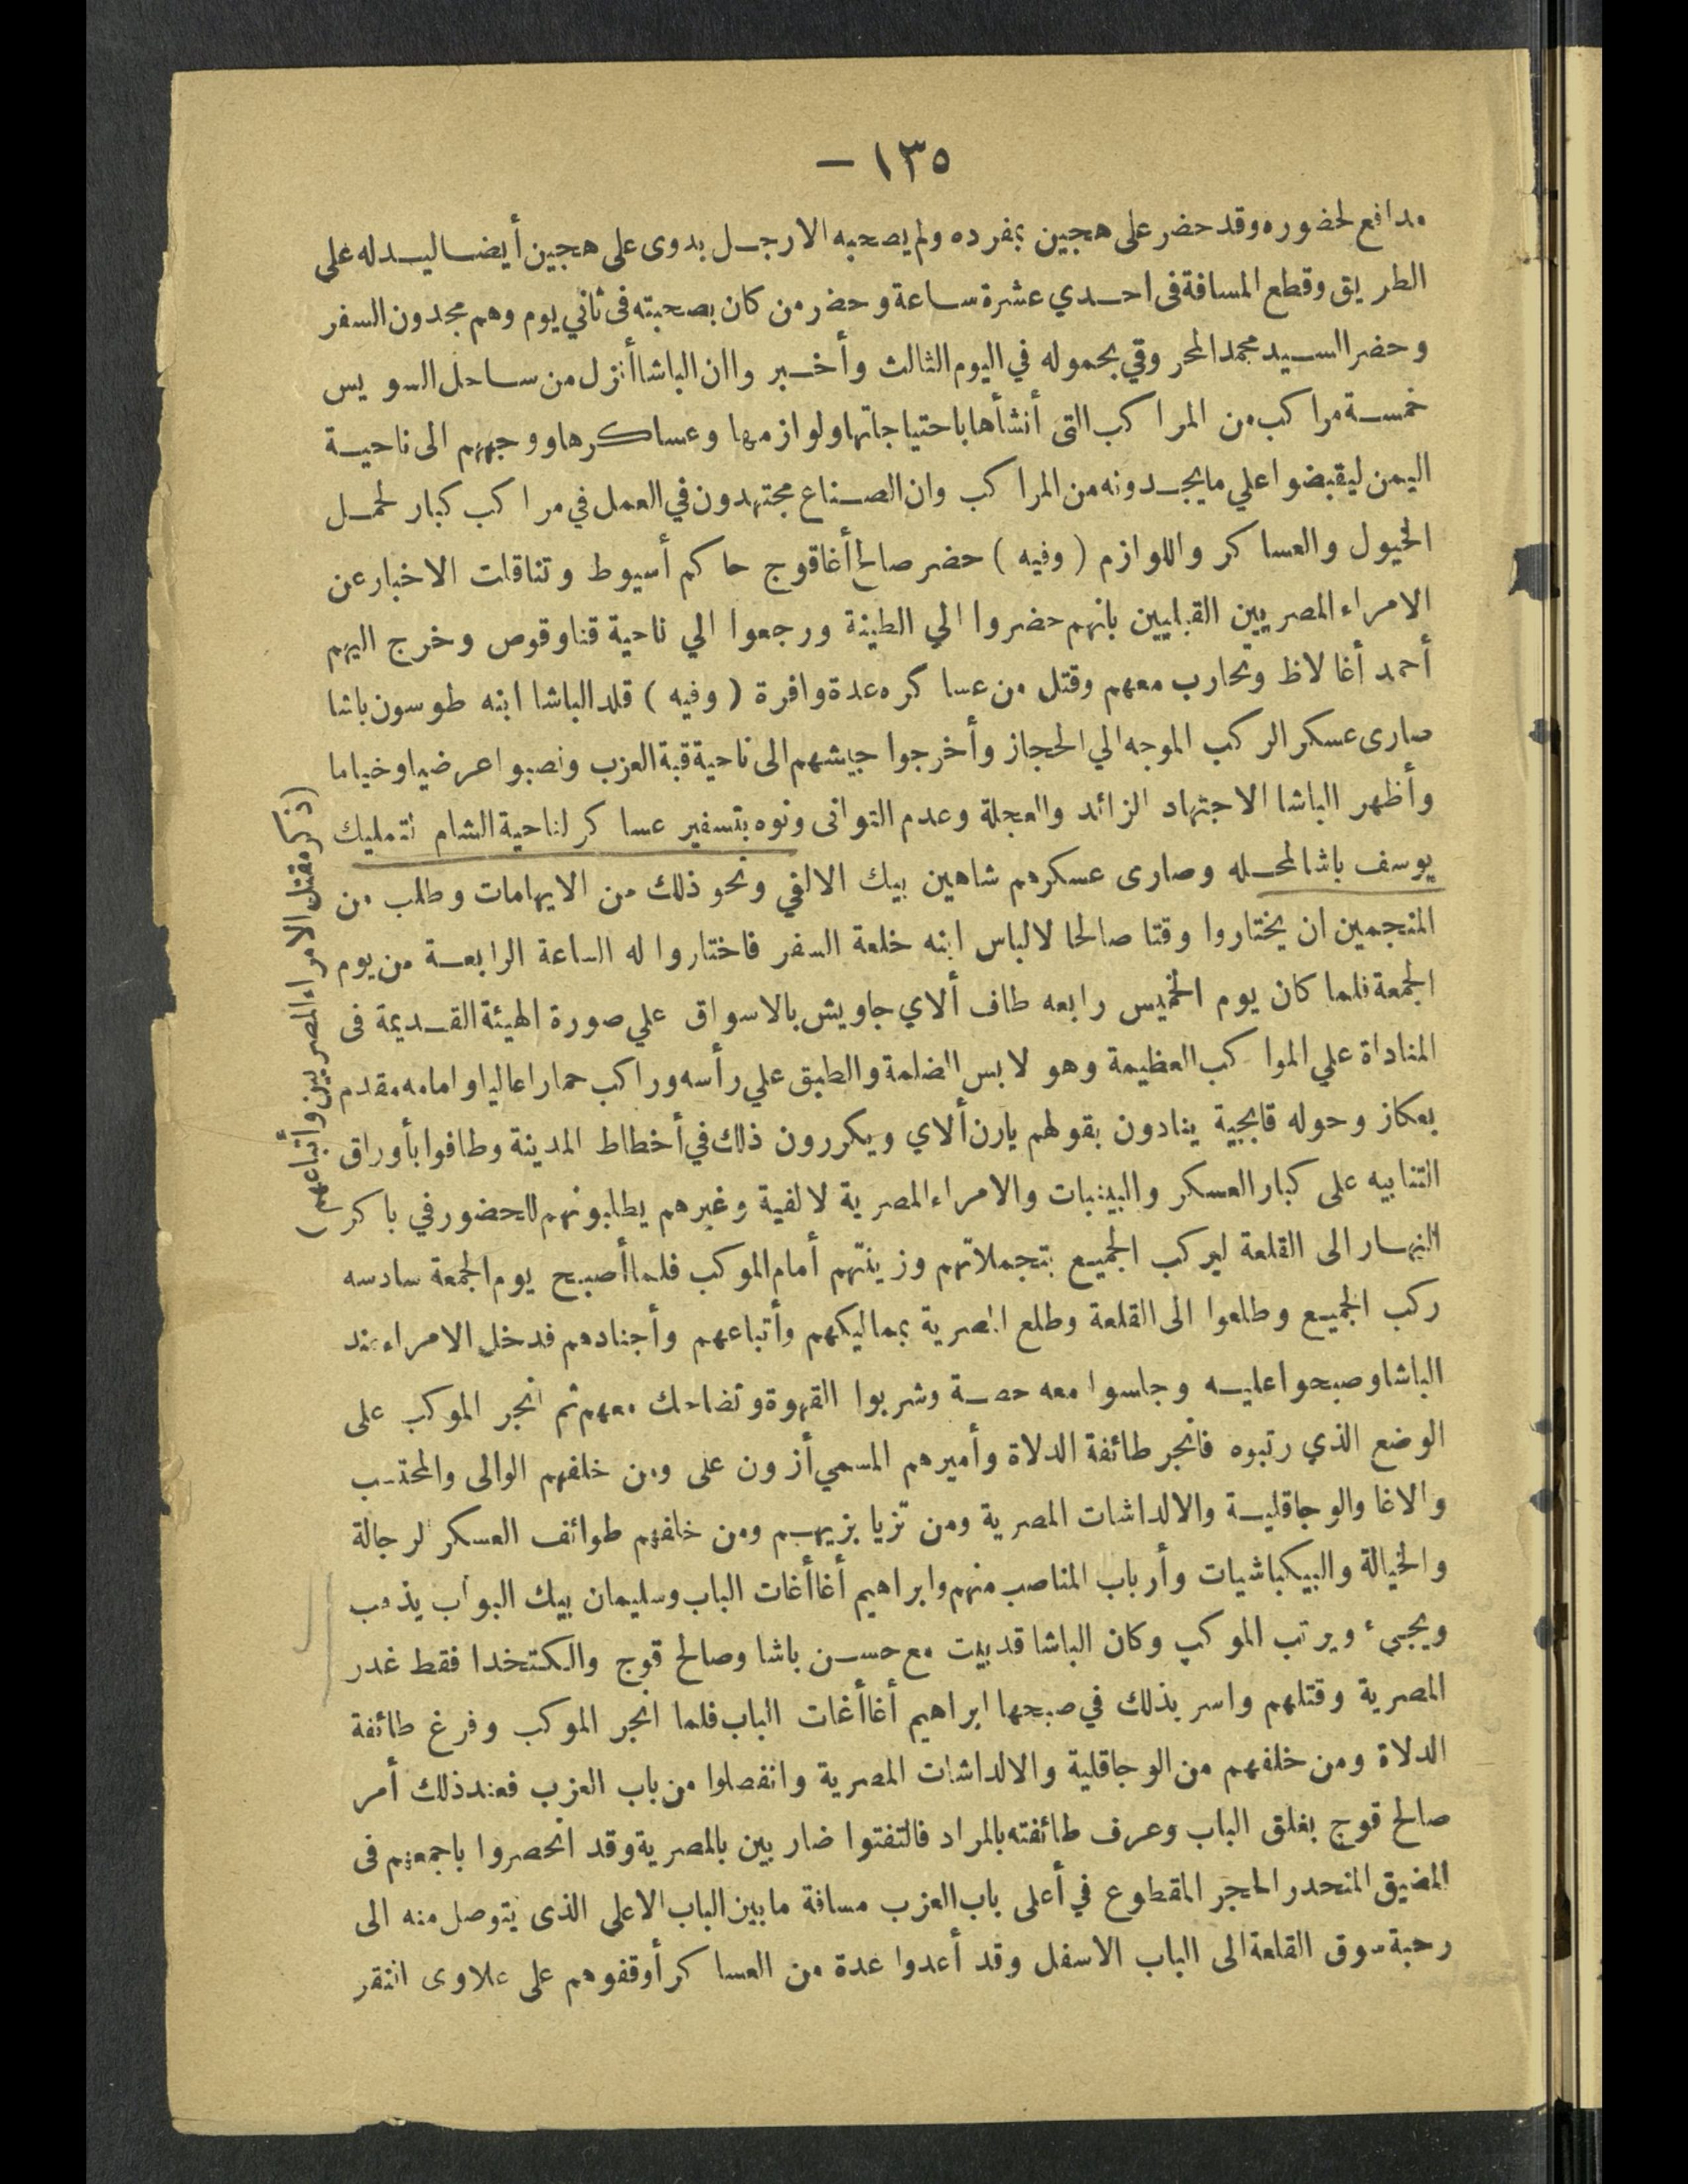 ١٣٥ —
مدافع لحضوره وقد حضر على هجين بمفرده ولم يصحبه الا رجل بدوى على هجين أيضا ليدله على
الطريق وقطع المسافة فى احدي عشرة ساعة وحضر من كان بصحبته فى ثاني يوم وهم مجدون السفر
وحضر السيد محمد المحروقي بحموله في اليوم الثالث وأخبروا ان الباشا أنزل من ساحل السويس
خمسة مراكب من المراكب التى أنشأها باحتياجاتها ولوازمها وعساكرها ووجههم الى ناحية
اليمن ليقبضوا علي ما يجدونه من المراكب وان الصناع مجتهدون في العمل في مراكب كبار لحمل
الخيول والعساكر واللوازم ( وفيه ) حضر صالح أغا قوج حاكم أسيوط وتناقلت الاخبار عن
الامراء المصريين القبليين بانهم حضروا الي الطينة ورجعوا الي ناحية قنا وقوص وخرج اليهم
أحمد أغا لاظ وتحارب معهم وقتل من عساكره عدة وافرة ( وفيه ) قلد الباشا ابنه طوسون باشا
صارى عسكر الركب الموجه الي الحجاز وأخرجوا جيشهم الى ناحية قبة العزب ونصبوا عرضيا وخياما
وأظهر الباشا الاجتهاد الزائد والعجلة وعدم التوانى ونوه بتسفير عساكر لناحية الشام لتمليك
يوسف باشا لمحله وصارى عسكرهم شاهين بيك الالفي ونحو ذلك من الايهامات وطلب من
المنجمين ان يختاروا وقتا صالحا لالباس ابنه خلعة السفر فاختاروا له الساعة الرابعة من يوم
الجمعة فلما كان يوم الخميس رابعه طاف ألاي جاويش بالاسواق علي صورة الهيئة القديمة فى
المناداة علي المواكب العظيمة وهو لابس الضلمة والطبق علي رأسه وراكب حمارا عاليا وامامه مقدم
بعكاز وحوله قابجية ينادون بقولهم يارن ألاي ويكررون ذلك في أخطاط المدينة وطافوا بأوراق
التنابيه على كبار العسكر والبينبات والامراء المصرية لالفية وغيرهم يطلبونهم للحضور في باكر
النهار الى القلعة ليركب الجميع بتجملاتهم وزينتهم أمام الموكب فلما أصبح يوم الجمعة سادسه
ركب الجميع وطلعوا الى القلعة وطلع المصرية بمماليكهم وأتباعهم وأجنادهم فدخل الامراء عند
الباشا وصبحوا عليه وجلسوا معه حصة وشربوا القهوة وتضاحك معهم ثم انجر الموكب على
الوضع الذي رتبوه فانجر طائفة الدلاة وأميرهم المسمي أزون على ومن خلفهم الوالى والمحتسب
والاغا والوجاقلية والالداشات المصرية ومن تزيا بزيهم ومن خلفهم طوائف العسكر لرجالة
والخيالة والبيكباشيات وأرباب المناصب منهم وابراهيم أغا أغات الباب وسليمان بيك البواب يذهب
ويجيء ويرتب الموكب وكان الباشا قد بيت مع حسن باشا وصالح قوج والكتخدا فقط غدر
المصرية وقتلهم واسر بذلك في صبحها ابراهيم أغا أغات الباب فلما انجر الموكب وفرغ طائفة
الدلاة ومن خلفهم من الوجاقلية والالداشات المصرية وانفصلوا من باب العزب فعند ذلك أمر
صالح قوج بغلق الباب وعرف طائفته بالمراد فالتفتوا ضاربين بالمصرية وقد انحصروا باجمعهم فى
المضيق المنحدر الحجر المقطوع في أعلى باب العزب مسافة ما بين الباب الاعلى الذى يتوصل منه الى
رحبة سوق القلعة الى الباب الاسفل وقد أعدوا عدة من العساكر أوقفوهم على علاوى النقر
(ذكر مقتل الامراء المصريين وأتباعهم)